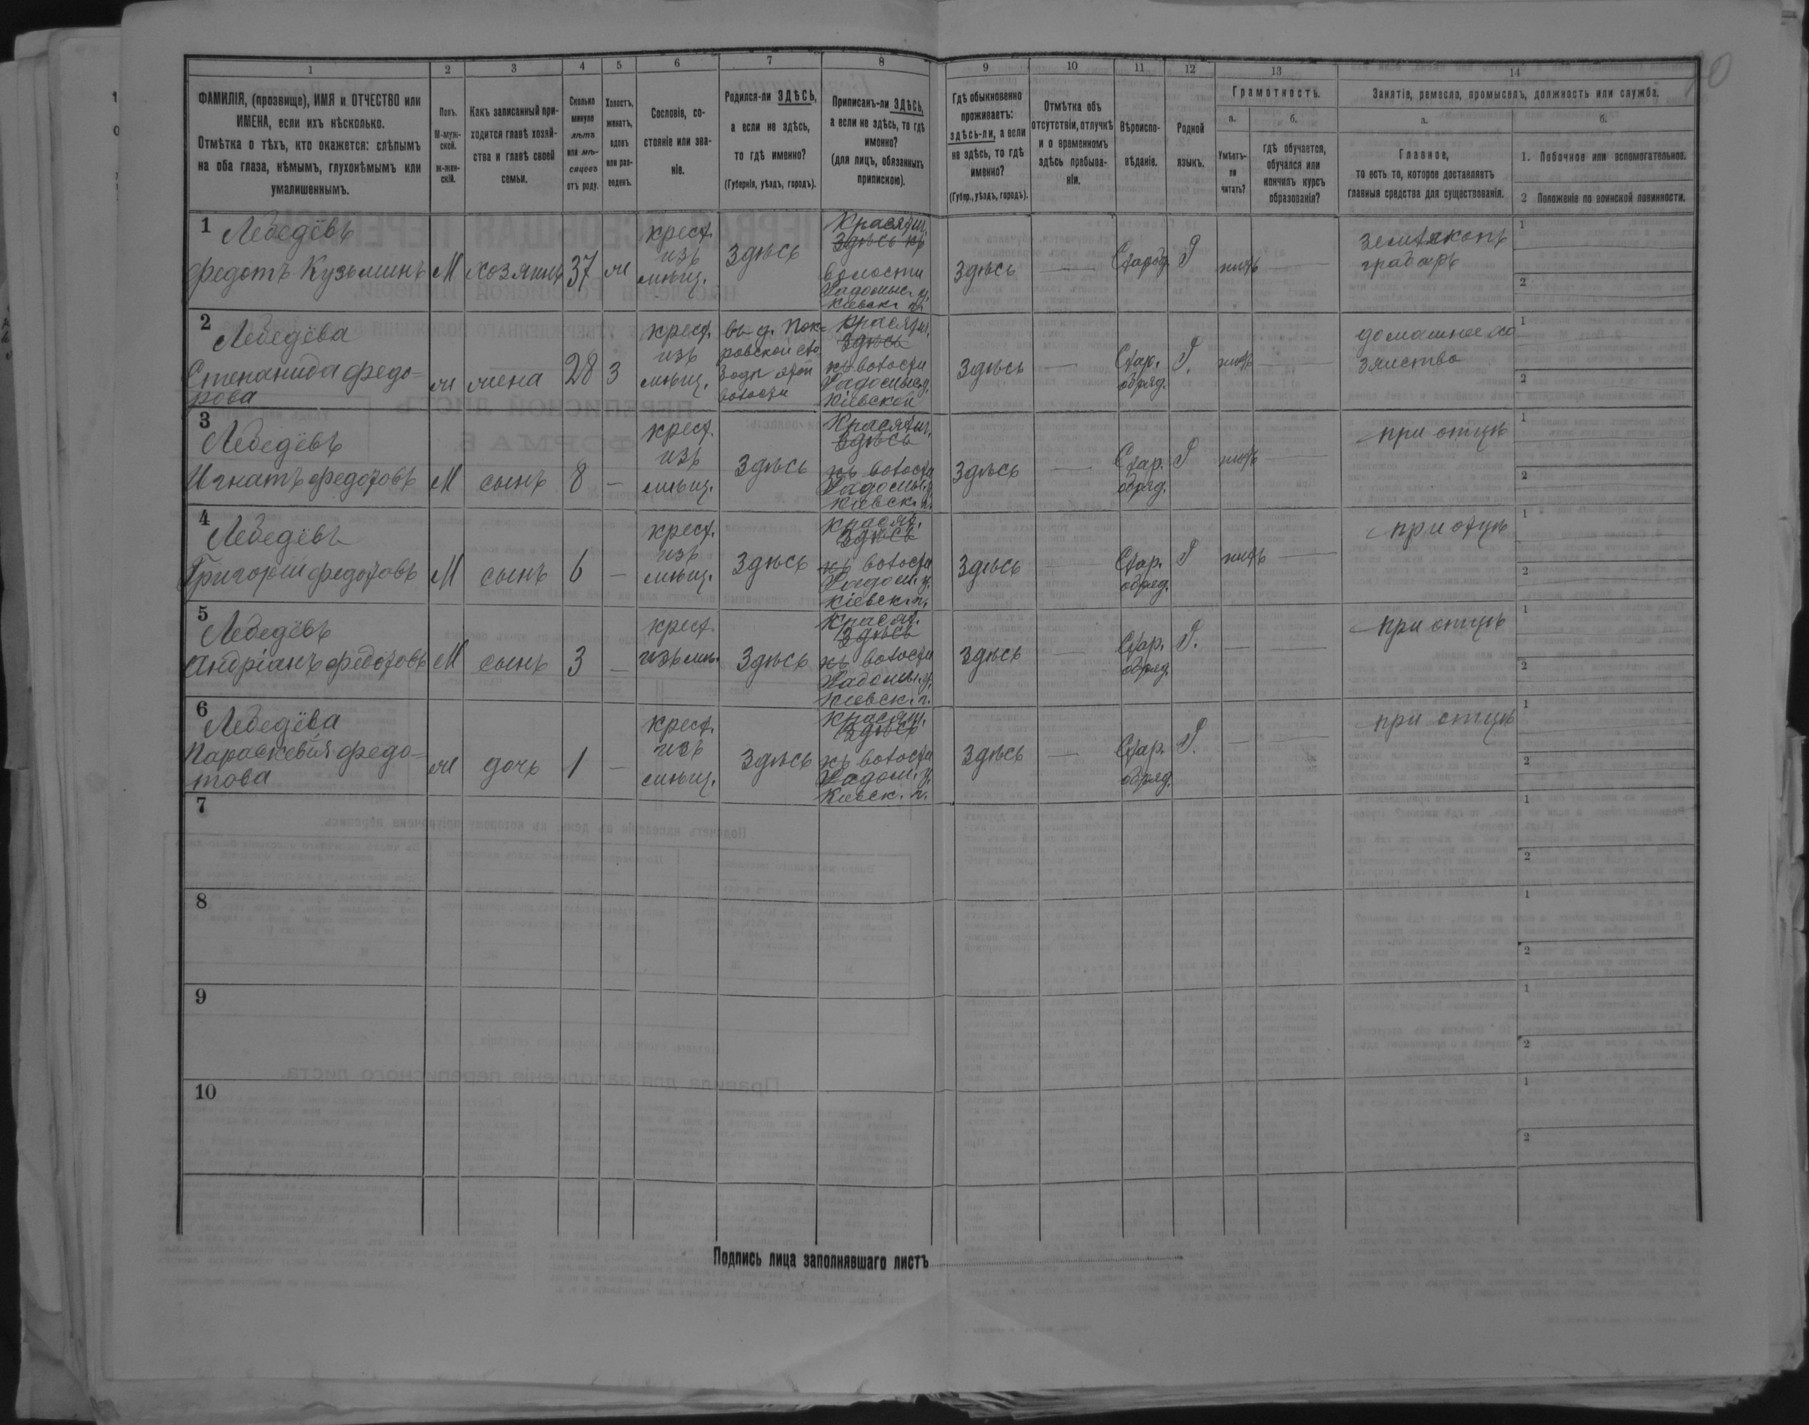 1 2 3 4 5 6 7 8 9 10 11 12 13 14
ФАМИЛІЯ, (прозвище), ИМЯ и ОТЧЕСТВО или
ИМЕНА, если ихъ нѣсколько.
Отмѣтка о тѣхъ, кто окажется: слѣпымъ
на оба глаза, нѣмымъ, глухонѣмымъ или
умалишеннымъ.
Полъ.
М-муж-
ской.
ж-жен-
скій.
Какъ записанный при-
ходится главѣ хозяй-
ства и главѣ своей
семьи.
Сколько
минуло
лѣтъ
или мѣ-
сяцевъ
отъ роду.
Холостъ,
женатъ,
вдовъ
или раз-
веденъ.
Сословіе, со-
стояніе или зва-
ніе.
Родился-ли ЗДѢСЬ,
а если не здѣсь,
то гдѣ именно?
(Губернія, уѣздъ, городъ).
Приписанъ-ли ЗДѢСЬ,
а если не здѣсь, то гдѣ
именно?
(для лицъ, обязанныхъ
припискою).
Гдѣ обыкновенно
проживаетъ:
здѣсь-ли, а если
не здѣсь, то гдѣ
именно?
(Губер., уѣздъ, городъ).
Отмѣтка объ
отсутствіи, отлучкѣ
и о временномъ
здѣсь пребыва-
ніи.
Вѣроиспо-
вѣданіе.
Родной
языкъ.
Грамотность.
а.
Умѣетъ-
ли
читать?
б.
гдѣ обучается,
обучался или
кончилъ курсъ
образованія?
Занятія, ремесло, промыселъ, должность или служба.
а.
Главное,
то есть то, которое доставляетъ
главныя средства для существованія.
б.
1. Побочное или вспомогательное.
2 Положеніе по воинской повинности.
1 Лебедёвъ
Федотъ Кузьминъ
М
хозяинъ
37
ж
крест.
изъ
мѣщ.
Здѣсь
Красят.
Здѣсь къ
волости
Радомыс. у.
Кіевск. г.
Здѣсь
—
Р
—
землекопъ
грабарь
1
2
2 Лебедёва
Степанида Федо-
рова
ж
жена
28
З
крест.
изъ
мѣщ.
въ д. Пок-
ровской
волости
Красят.
Здѣсь
къ волости
Кіевской
Здѣсь
—
Стар.
обряд.
Р.
—
домашнее хо
зяйство
1
2
3 Лебедёвъ
Игнатъ Федотовъ
М
сынъ
8
—
крест.
изъ
мѣщ.
Здѣсь
Красят.
Здѣсь
къ волости
Радомы. у.
Кіевск. г.
Здѣсь
—
Стар.
обряд.
Р
—
при отцѣ
1
2
4 Лебедёвъ
Григорій Федотовъ
М
сынъ
6
—
крест.
изъ
мѣщ.
Здѣсь
Красят.
Здѣсь
къ волости
Радом. у.
Кіевск. г.
Здѣсь
—
Стар.
обряд.
Р
—
при отцѣ
1
2
5 Лебедёвъ
Андріанъ Федотовъ
М
сынъ
3
—
крест.
изъ мѣ.
Здѣсь
Красят.
Здѣсь
къ волости
Радомы. у.
Кіевск. г.
Здѣсь
—
Стар.
обряд.
Р.
—
—
при отцѣ
1
2
6 Лебедёва
Параскевія Федо-
това
ж
дочь
1
—
крест.
изъ
мѣщ.
Здѣсь
Красят.
Здѣсь
къ волости
Радом. у.
Кіевск. г.
Здѣсь
—
Стар.
обряд.
Р.
—
—
при отцѣ
1
2
7
1
2
8
1
2
9
1
2
10
1
2
Подпись лица заполнявшаго листъ